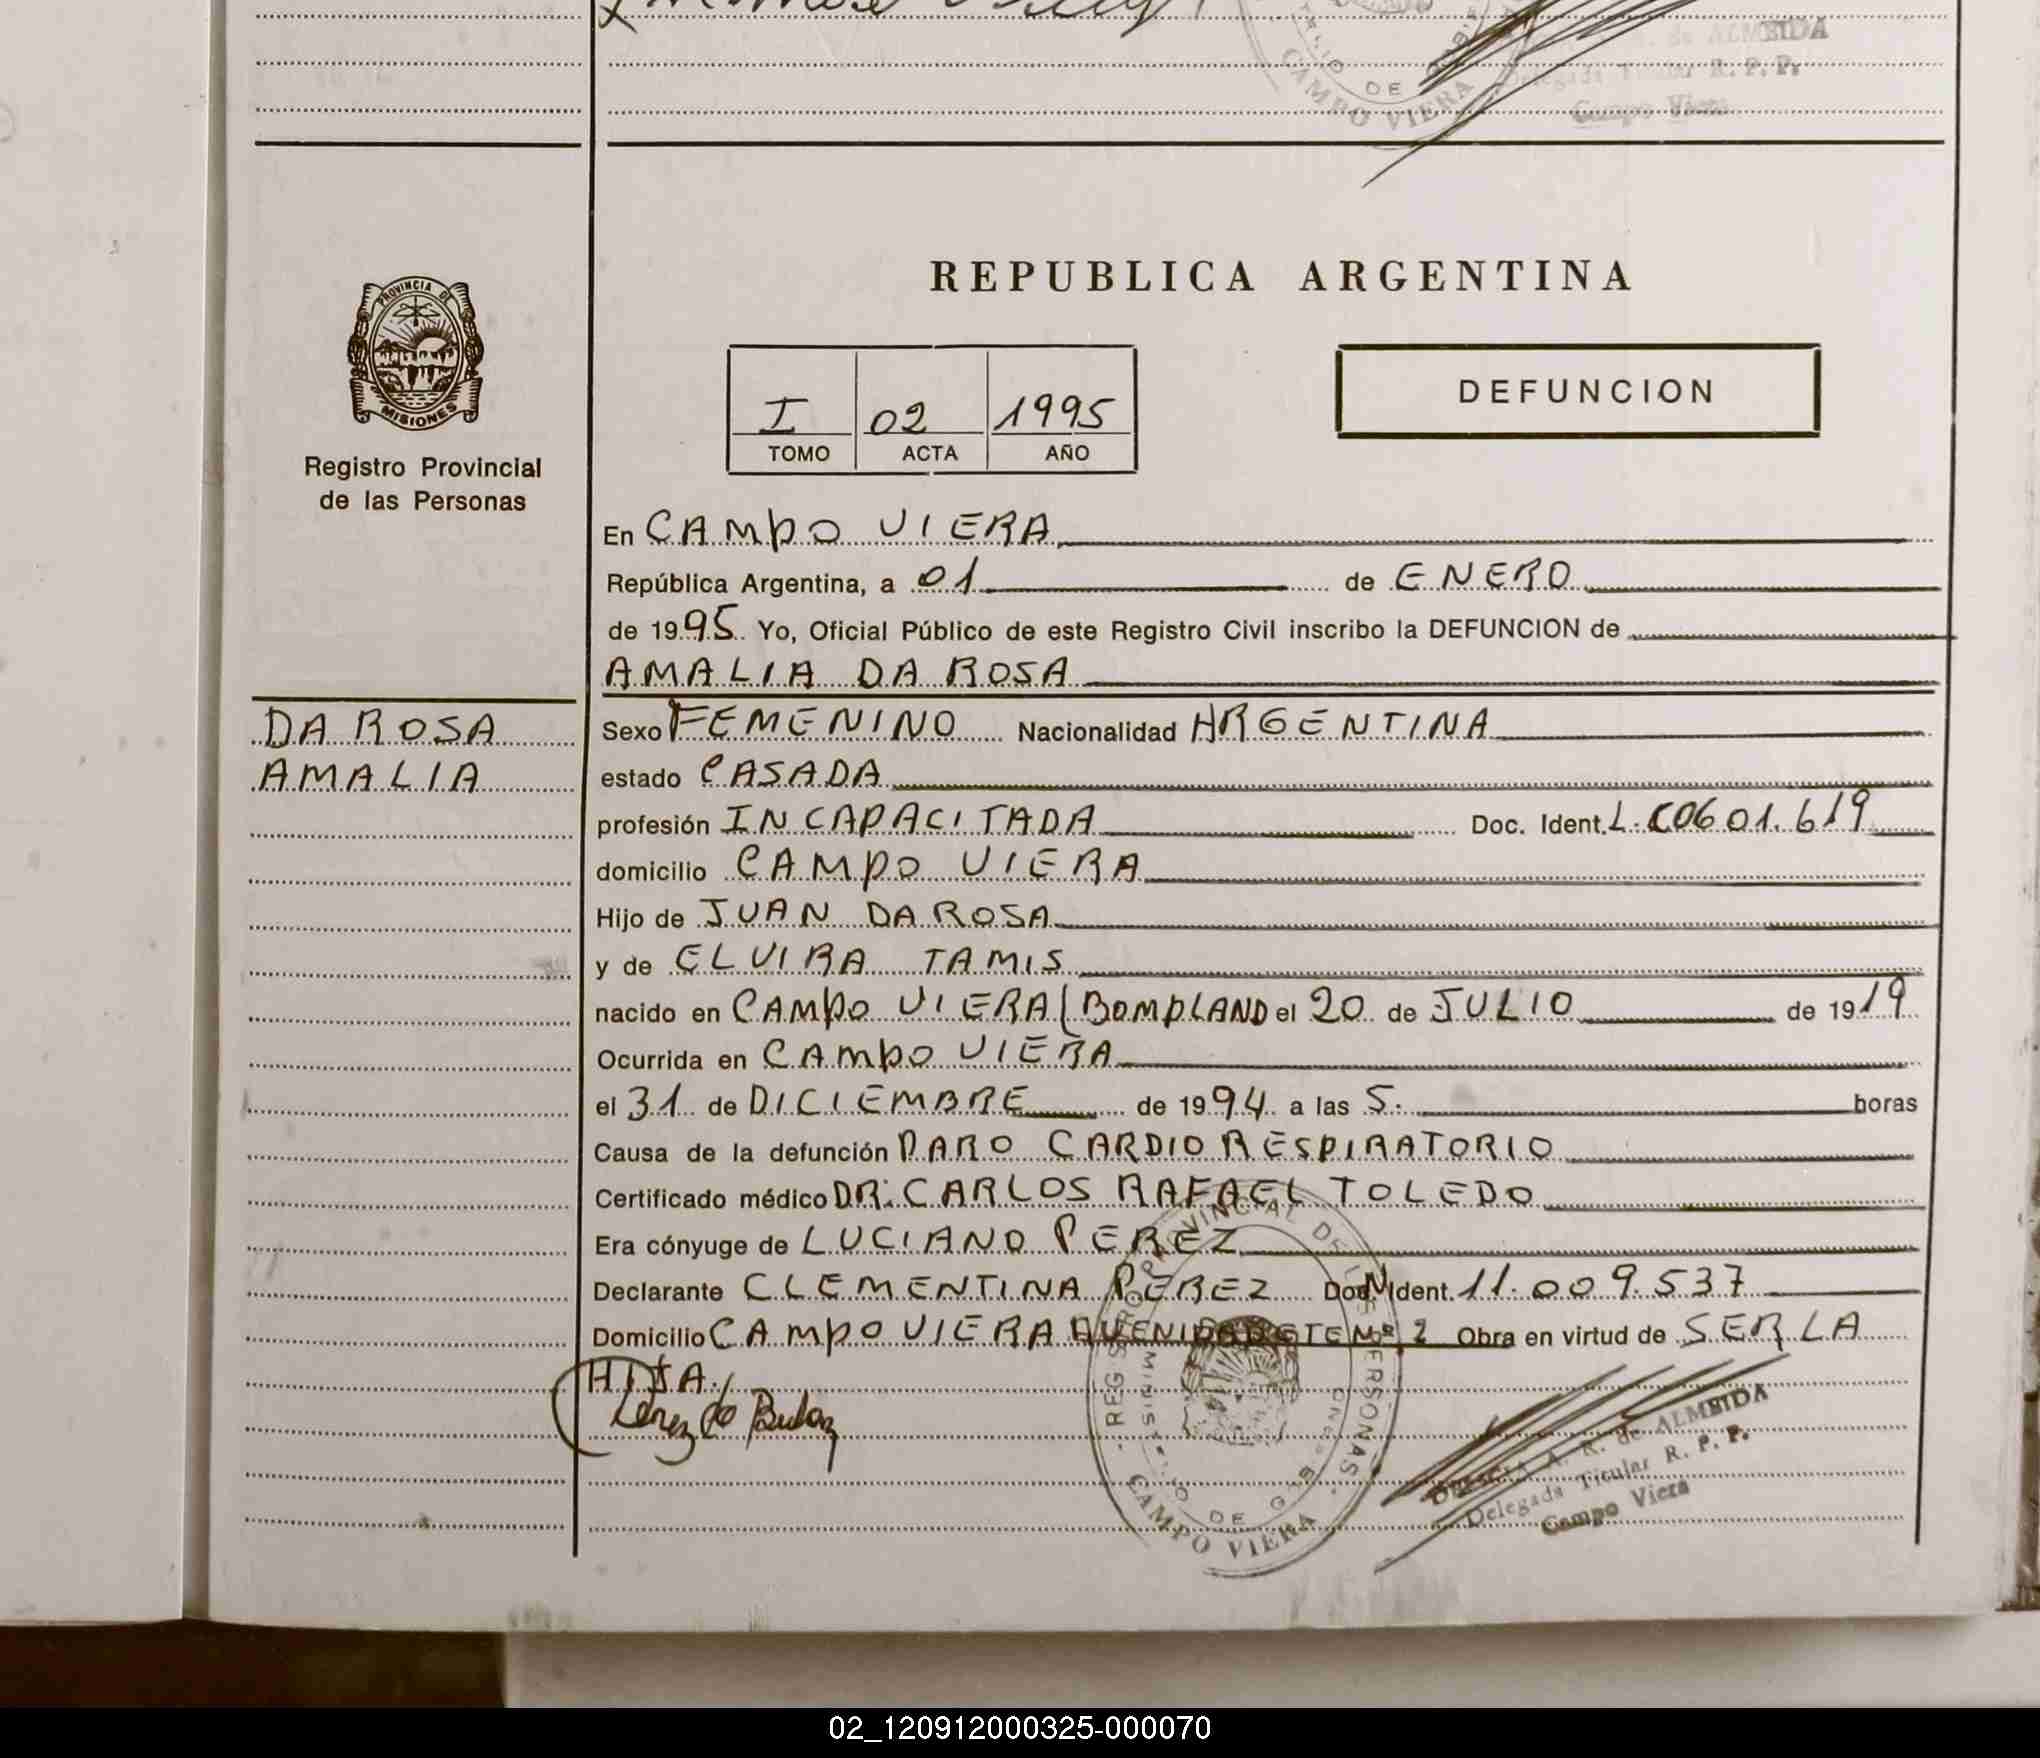 ALMEIDA
Delegada Titular R. P. P.
Campo Viera
DE
CAMPO VIERA
REPUBLICA ARGENTINA
PROVINCIA DE
MISIONES
Registro Provincial
de las Personas
I 02 1995
TOMO ACTA AÑO
DEFUNCION
En CAMPO VIERA
República Argentina, a 01 de ENERO
de 1995 Yo, Oficial Público de este Registro Civil inscribo la DEFUNCION de
AMALIA DA ROSA
DA ROSA
AMALIA
Sexo FEMENINO Nacionalidad ARGENTINA
estado CASADA
profesión INCAPACITADA Doc. Ident. L.C 0601.619
domicilio CAMPO VIERA
Hijo de JUAN DA ROSA
y de ELVIRA TAMIS
nacido en CAMPO VIERA (BOMPLAND el 20 de JULIO de 1919
Ocurrida en CAMPO VIERA
el 31 de DICIEMBRE de 1994 a las 5. horas
Causa de la defunción PARO CARDIO RESPIRATORIO
Certificado médico DR. CARLOS RAFAEL TOLEDO
Era cónyuge de LUCIANO PEREZ
Declarante CLEMENTINA PEREZ Doc. Ident. 11.009.537
Domicilio CAMPO VIERA AVENIDA DEL TE Nº 2 Obra en virtud de SER LA
HIJA.
REGISTRO PROVINCIAL DE LAS PERSONAS
MINISTERIO DE GOBIERNO
CAMPO VIERA
A. R. de ALMEIDA
Delegada Titular R. P. P.
Campo Viera
02_120912000325-000070